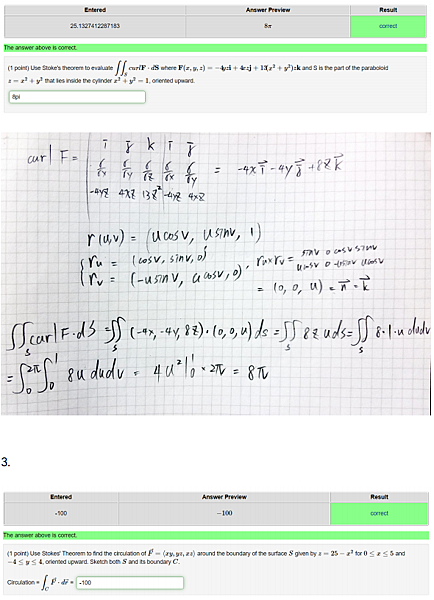 Entered Answer Preview Result
25.1327412287183 8π correct
The answer above is correct.
(1 point) Use Stoke's theorem to evaluate ∬_S curlF · dS where F(x, y, z) = −4yzi + 4xzj + 13(x² + y²)zk and S is the part of the paraboloid
z = x² + y² that lies inside the cylinder x² + y² = 1, oriented upward.
8pi
i j k i j
curl F = δ/δx δ/δy δ/δz δ/δx δ/δy = -4x i - 4y j + 8z k
-4yz 4xz 13z² -4yz 4xz
r(u,v) = (u cosv, u sinv, 1)
ru = (cosv, sinv, 0)
rv = (-u sinv, u cosv, 0), ru×rv = sinv 0 cosv sinv
ucosv 0 -usinv ucosv
= (0, 0, u) = n = k
∬_S curl F·dS = ∬_S (-4x, -4y, 8z)·(0, 0, u) ds = ∬_S 8z u ds = ∬_S 8·1·u dudv
= ∫_0^2π ∫_0^1 8u dudv = 4u²|_0^1 × 2π = 8π
3.
Entered Answer Preview Result
-100 −100 correct
The answer above is correct.
(1 point) Use Stokes' Theorem to find the circulation of F = ⟨xy, yz, xz⟩ around the boundary of the surface S given by z = 25 − x² for 0 ≤ x ≤ 5 and
−4 ≤ y ≤ 4, oriented upward. Sketch both S and its boundary C.
Circulation = ∫_C F · dr = -100